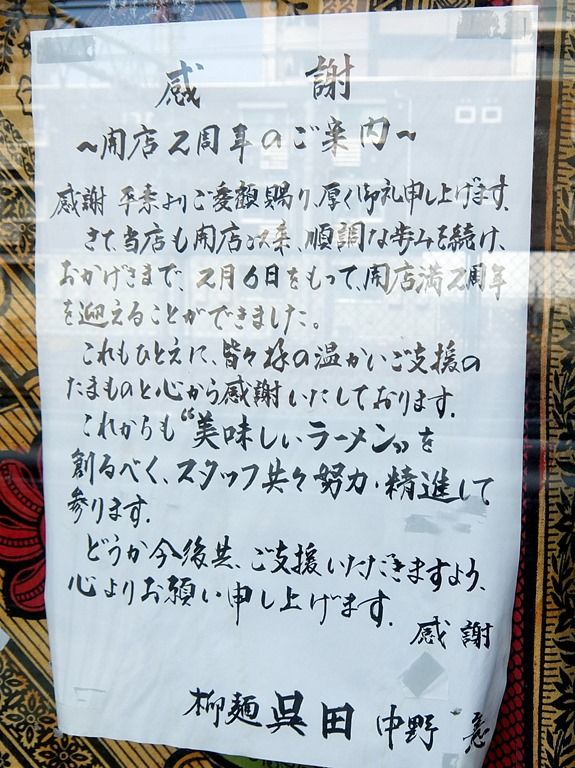 感謝
~開店2周年のご案内~
感謝 平素よりご愛顔賜り、厚く御礼申し上げます。
さて、当店も開店以来、順調な歩みを続け、
おかげさまで、2月6日をもって、開店満2周年
を迎えることができました。
これもひとえに、皆々様の温かいご支援の
たまものと心から感謝いたしております。
これからも“美味しいラーメン”を
創るべく、スタッフ共々努力・精進して
参ります。
どうか今後共、ご支援いただきますよう、
心よりお願い申し上げます。
感謝
柳麺 呉田 中野